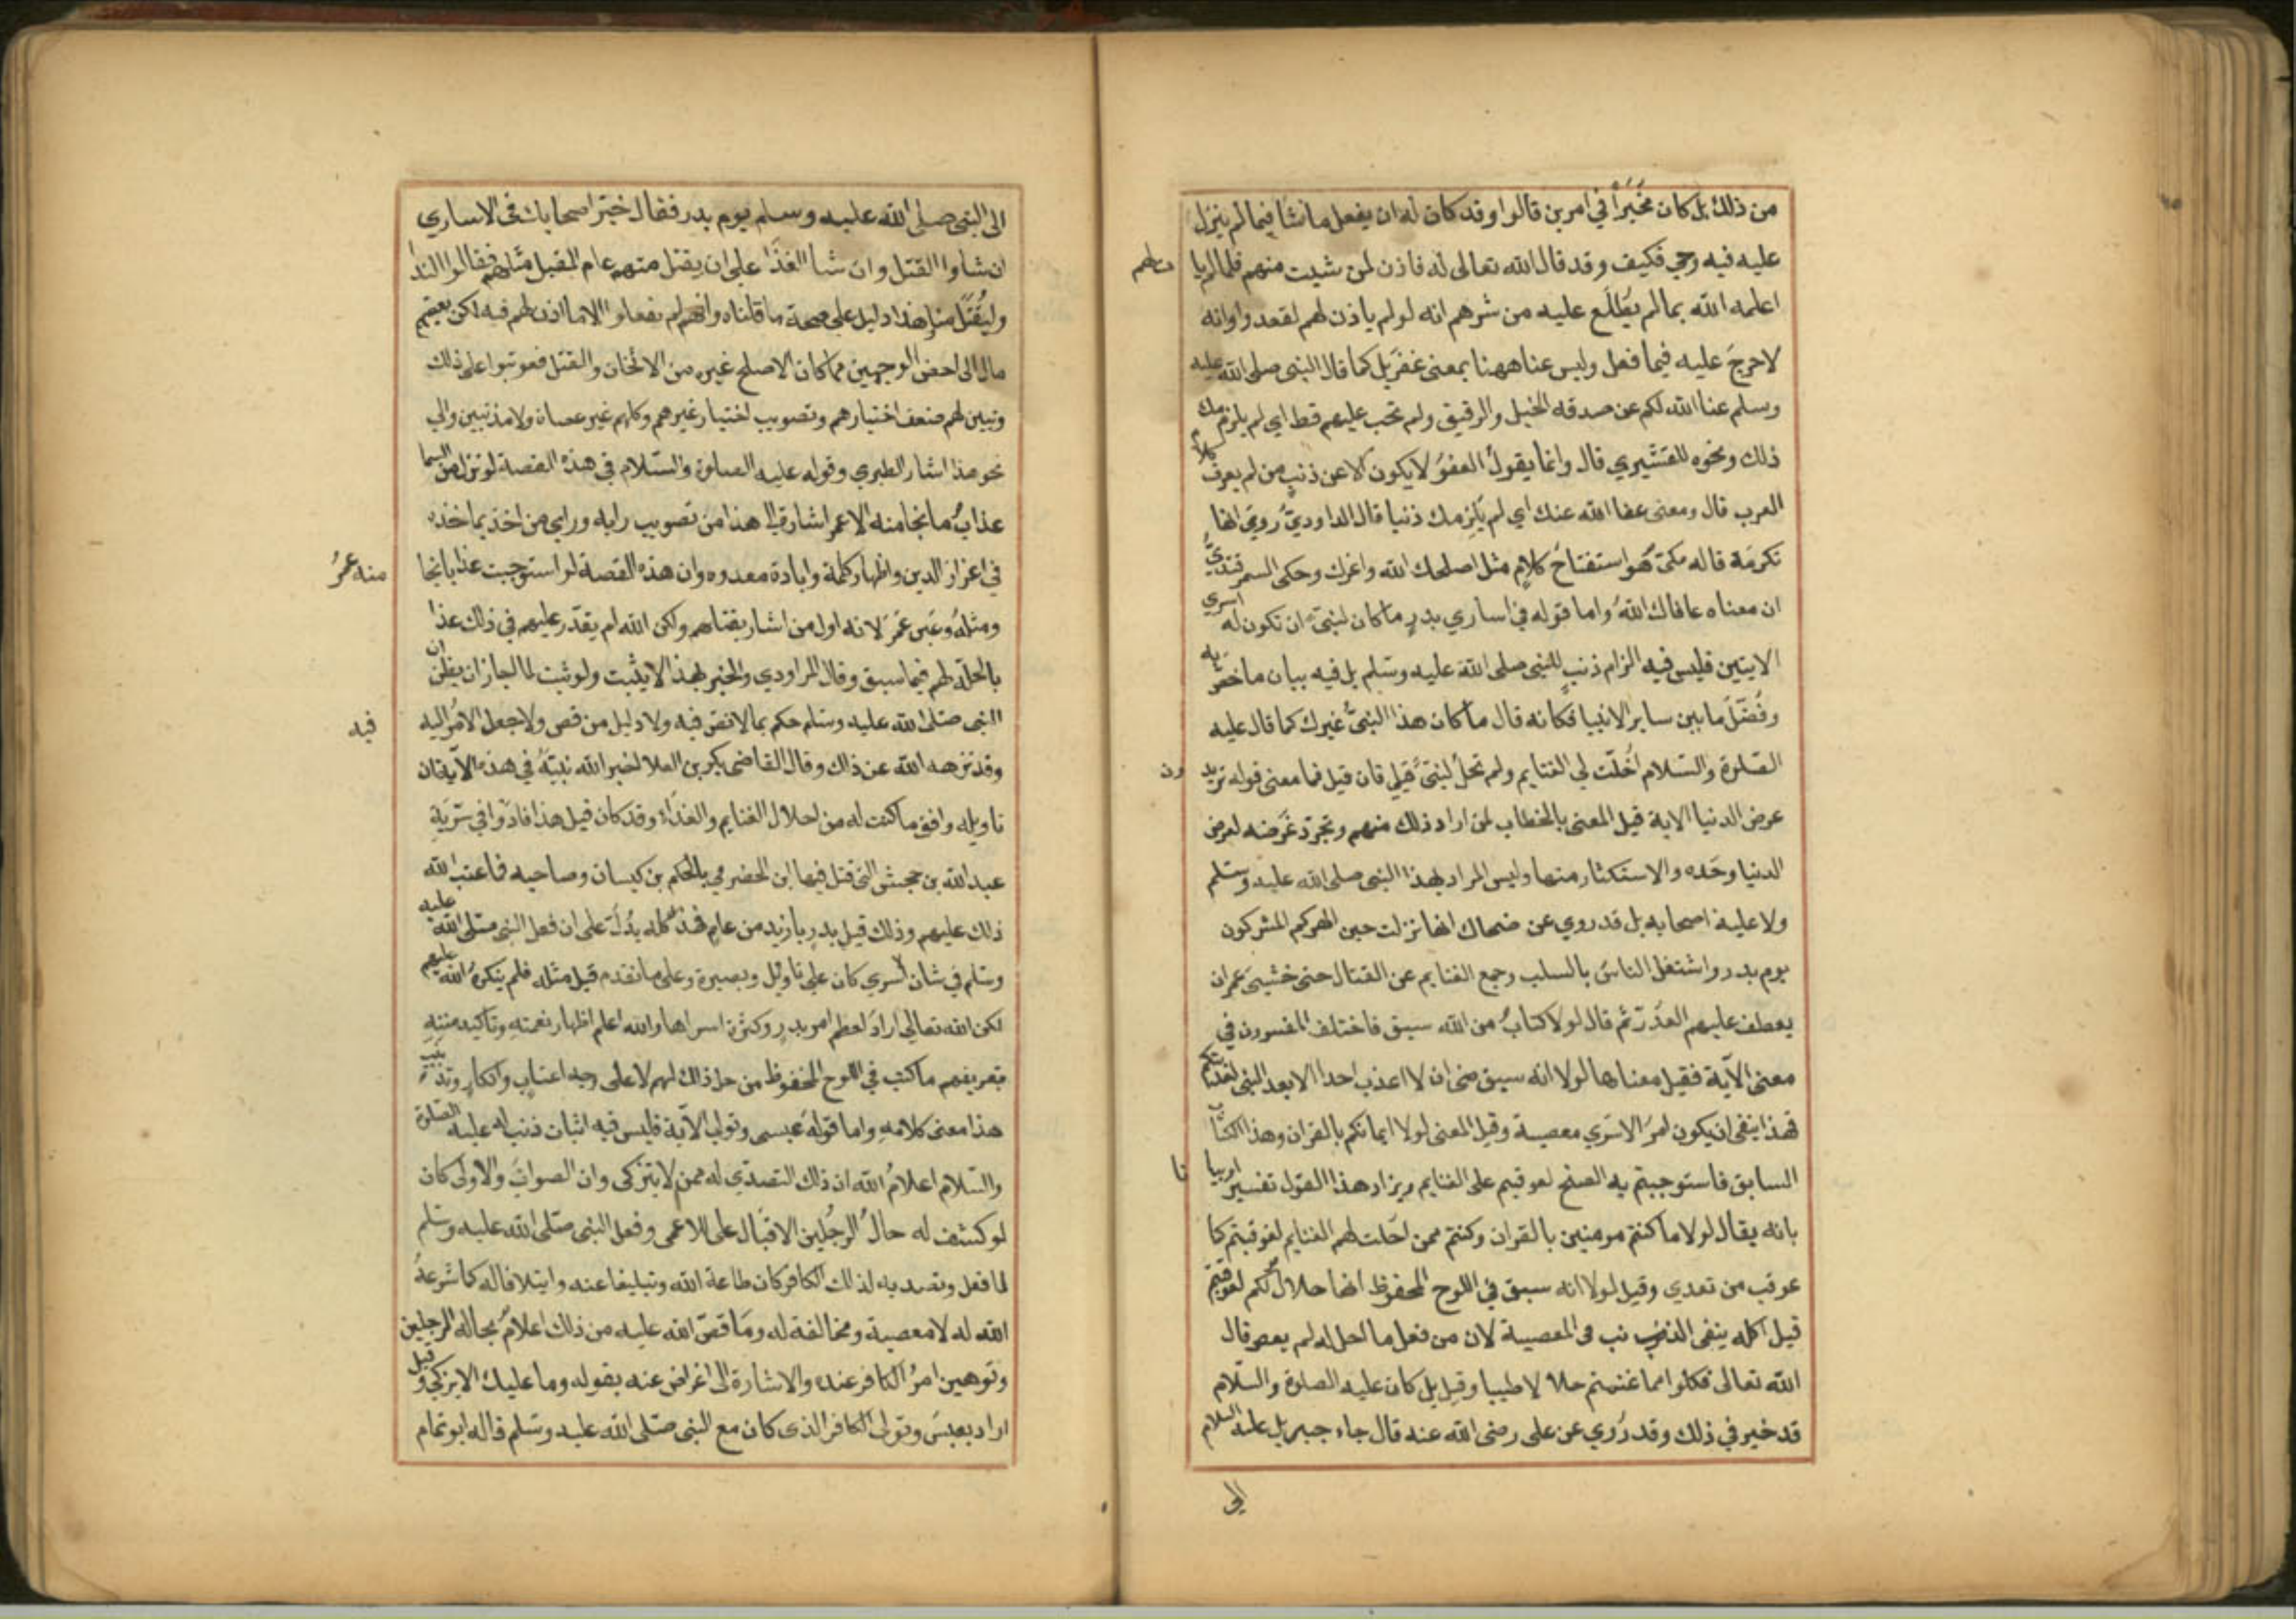 من ذلك بل كان مخيرا في امرين قالوا وقد كان له ان يفعل ما نشا فيما لم ينزل
عليه فيه وحي فكيف وقد قال الله تعالى له فاذن لمن شيت منهم فلما
اعلمه الله بما لم يطلع عليه من شرهم انه لو لم ياذن لهم لقعدوا وانه
لا حرج عليه فيما فعل وليس عنا ههنا بمعنى غفر بل كما قال النبي صلى الله عليه
وسلم عفا الله لكم عن صدقه الخيل والرقيق ولم تجب عليهم قط اي لم يلزمكم
ذلك ونحوه للقشيري قال وانما يقول العفو لا يكون الا عن ذنب من لم يعرف كلام
العرب قال ومعنى عفا الله عنك اي لم يلزمك ذنبا قال الداودي روي انها
تكرمة قال مكي هو استفتاح كلام مثل اصلحك الله واعزك وحكى السمرقندي
ان معناه عافاك الله واما قوله في اساري بدر ما كان لنبي ان تكون له اسري
الايتين فليس فيه الزام ذنب للنبي صلى الله عليه وسلم بل فيه بيان ما خص به
وفضل ما بين ساير الانبيا فكانه قال ما كان هذا النبي غيرك كما قال عليه
الصلوة والسلام احلت لي الغنايم ولم تحل لنبي قبلي فان قيل فما معنى قوله تريد
ون
عرض الدنيا الاية قيل المعنى بالخطاب لمن اراد ذلك منهم وتجرد غرضه لعرض
الدنيا وحده والاستكثار منها وليس المراد بهذا النبي صلى الله عليه وسلم
ولا علية اصحابه بل قد روي عن ضحاك انها نزلت حين انهزم المشركون
يوم بدر واشتغل الناس بالسلب وجمع الغنايم عن القتال حتى خشي عمر ان
يعطف عليهم العدو ثم قال لولا كتاب من الله سبق فاختلف المفسرون في
معنى الاية فقيل معناها لولا انه سبق مني ان لا اعذب احدا الا بعد النهي لعذبتكم
فهذا ينفي ان يكون امر الاسري معصية وقيل المعنى لولا ايمانكم بالقران وهذا الكتاب
السابق فاستوجبتم به الصفح لعوقبتم على الغنايم ويزاد هذا القول تفسيرا وبيا
نا
بانه يقال لولا ما كنتم مومنين بالقران وكنتم ممن احلت لهم الغنايم لعوقبتم كما
عوقب من تعدي وقيل لولا انه سبق في اللوح المحفوظ انها حلال لكم لعوقبتم
قيل كله ينفي الذنب والمعصية لان من فعل ما احل له لم يعص قال
الله تعالى فكلوا مما غنمتم حلالا طيبا وقيل بل كان عليه الصلوة والسلام
قد خير في ذلك وقد روي عن علي رضي الله عنه قال جاء جبريل عليه السلام
الى
الى النبي صلى الله عليه وسلم يوم بدر فقال خير اصحابك في الاساري
ان شاوا القتل وان شا الفدا على ان يقتل منهم عام المقبل مثلهم فقالوا الفدا
وليقتل منا هذا دليل على صحة ما قلناه وانهم لم يفعلوا الا ما اذن لهم فيه لكن بعضهم
مال الى اضعف الوجهين مما كان الاصلح غيره من الاثخان والقتل فعوتبوا على ذلك
وتبين لهم ضعف اختيارهم وتصويب اختيار غيرهم وكلهم غير عصاة ولا مذنبين والي
نحو هذا اشار الطبري وقوله عليه الصلوة والسلام في هذه القصة لو نزل من السما
عذاب ما نجا منه الا عمر اشارة الى هذا من تصويب رايه وراي من اخذ بماخذه
في اعزاز الدين واظهار كلمة وابادة عدوه وان هذه القصة لو استوجبت عذابا نجا
منه عمر
ومثله وعين عمر لانه اول من اشار بقتلهم ولكن الله لم يقدر عليهم في ذلك عذا
بالحله لهم فيما سبق وقال الداودي والخبر بهذا لا يثبت ولو ثبت لما جاز ان يظن ان
النبي صلى الله عليه وسلم حكم بما لا نص فيه ولا دليل من نص ولا جعل الامر اليه
فيه
وقد نزهه الله عن ذلك وقال القاضي بكر بن العلا اخبر الله نبيه في هذه الاية ان
تاويله وافق ما كتب له من احلال الغنايم والفداء وقد كان قبل هذا فادوا في سرية
عبد الله بن جحش التي قتل فيها ابن الحضرمي بالحكم بن كيسان وصاحبه فما عتب الله
ذلك عليهم وذلك قبل بدر بازيد من عام فهذا كله يدل على ان فعل النبي صلى الله عليه
وسلم في شان الاسري كان على تاويل وبصيرة وعلى ما تقدم قبل مثله فلم ينكره الله عليهم
لكن الله تعالى اراد لعظم امر بدر وكثرة اسراها والله اعلم اظهار نعمته وتاكيد منته
بتعريفهم ما كتب في اللوح المحفوظ من حل ذلك لهم لا على وجه اعتاب وانكار وتذنيب
هذا معنى كلامه واما قوله عبس وتولى الاية فليس فيه اثبات ذنب له عليه الصلوة
والسلام اعلام الله ان ذلك التصدي له ممن لا يتزكى وان الصواب والاولى كان
لو كشف له حال الرجلين الاقبال على الاعمى وفعل النبي صلى الله عليه وسلم
لما فعل وتصديه لذلك الكافر كان طاعة الله وتبليغا عنه وايتلافا له كما شرعه
الله له لا معصية ومخالفة له وما قص الله عليه من ذلك اعلام بحال الرجلين
وتوهين امر الكافر عنده والاشارة الى اعراض عنه بقوله وما عليك الا يزكي وقيل
اراد بعبس وتولى الكافر الذي كان مع النبي صلى الله عليه وسلم قاله ابو تمام